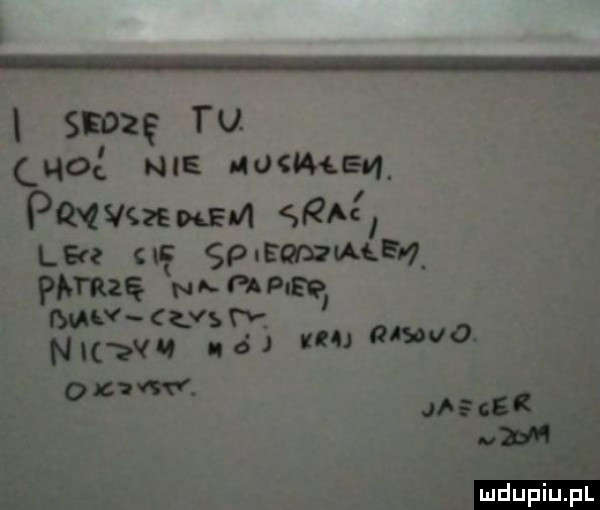 I SIEDZĘ TU.
CHOĆ NIE MUSIAŁEM.
PRZYSZEDŁEM SRAĆ,
LECZ SIĘ SPIERDZIAŁEM.
PATRZĘ NA PAPIER,
BIAŁY-CZYSTY.
NICZYM MÓJ KRAJ RASOWO
OJCZYSTY.
JA≡CER
mdupiu.pl